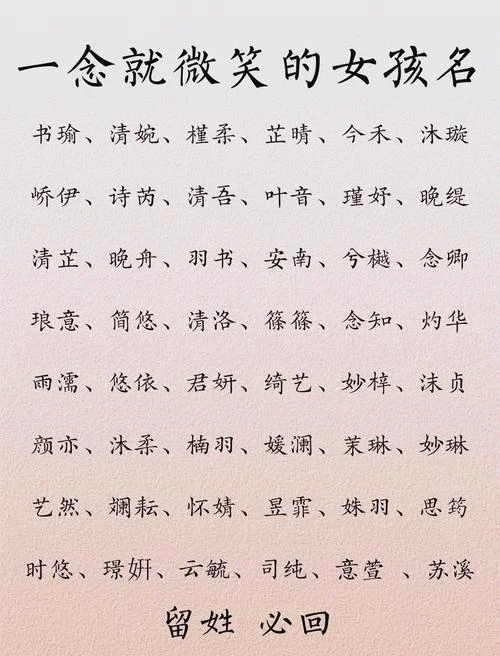 一念就微笑的女孩名
书瑜、清婉、槿柔、芷晴、今禾、沐璇
峤伊、诗芮、清吾、叶音、瑾妤、晚缇
清芷、晚舟、羽书、安南、兮樾、念卿
琅意、简悠、清洛、篠篠、念知、灼华
雨濡、悠依、君妍、绮艺、妙梓、沫贞
颜亦、沐柔、楠羽、媛澜、茉琳、妙琳
艺然、斓耘、怀婧、昱霏、姝羽、思筠
时悠、璟妍、云毓、司纯、意萱 、苏溪
留姓 必回